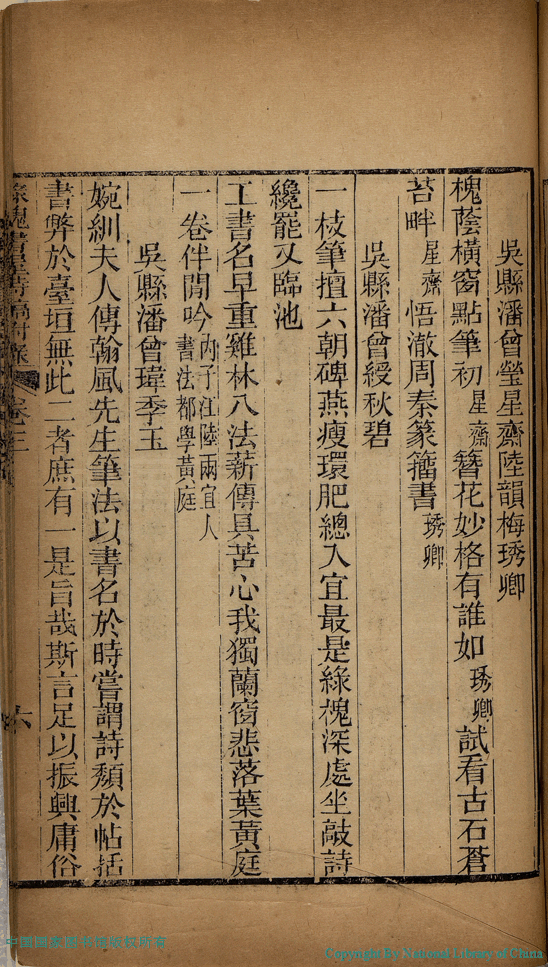 吳縣潘曾瑩星齋陸韻梅琇卿
槐蔭橫窗點筆初星齋簪花妙格有誰如琇卿試看古石蒼
苔畔星齋悟澈周秦篆籀書琇卿
吳縣潘曾綬秋碧
一枝筆擅六朝碑燕瘦環肥總入宜最是綠槐深處坐敲詩
纔罷又臨池
工書名早重雞林八法薪傳具苦心我獨蘭窗悲落葉黃庭
一卷伴閒吟內子汪陸兩宜人書法都學黃庭
吳縣潘曾瑋季玉
婉紃夫人傳翰風先生筆法以書名於時嘗謂詩頹於帖括
書弊於臺垣無此二者庶有一是旨哉斯言足以振興庸俗
綠槐書屋詩稿附錄 卷三 六
中国国家图书馆
Copyright By National Library of China